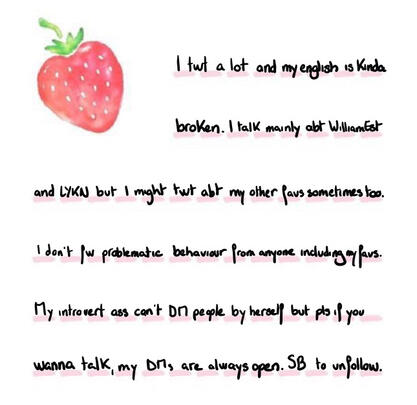 I twt a lot and my english is kinda
broken. I talk mainly abt WilliamEst
and LYKN but I might twt abt my other favs sometimes too.
I don't fw problematic behaviour from anyone including my favs.
My introvert ass can't DM people by herself but pls if you
wanna talk, my DMs are always open. SB to unfollow.